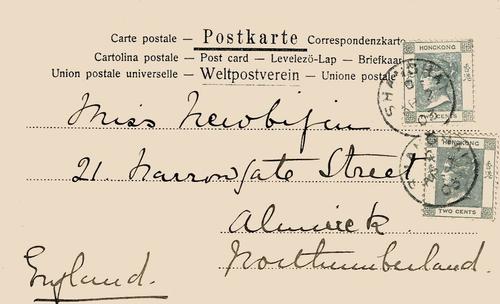 Carte postale — Postkarte Correspondenzkarte
Cartolina postale — Post card — Levelező-Lap — Briefkaart
Union postale universelle — Weltpostverein — Unione postale
HONGKONG
SHANGHAI
CENTS
HONGKONG
TWO CENTS
Miss Newbigin
21. Narrowgate Street
Alnwick.
Northumberland.
England.